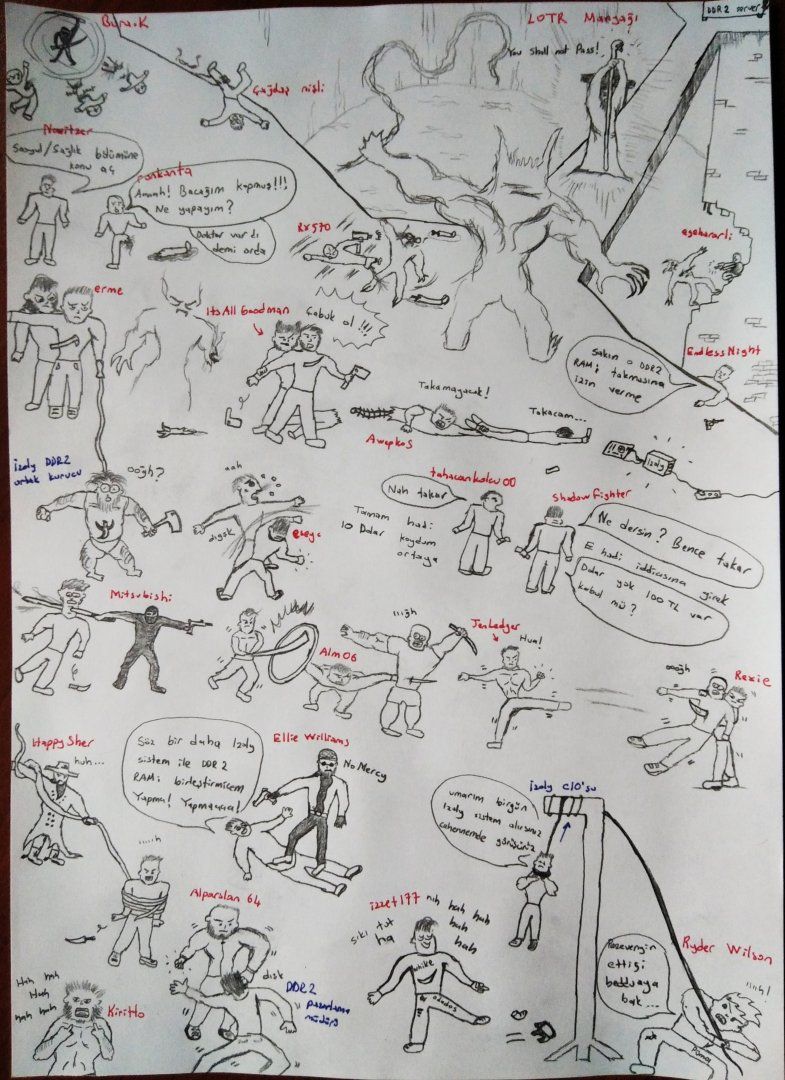 Burak
LOTR Mangağı
DDR2 server
You Shall not Pass!
Çağdaş nişli
Nowitzer
Sosyal/Sağlık bölümüne
konu aç
Aaaah! Bacağım kopmuş!!!
Ne yapayım?
Doktor var dı
demi orda
RX570
egehararli
erme
ItsAll Goodman
Çabuk ol !!!
EndlessNight
Sakın o DDR2
RAMi takmasına
izin verme
Takamayacak!
Takacam...
Awepkos
izoly
izoly DDR2
ortak kurucu
oogh?
aah
digok
tahacankolcu00
Nah takar
Tamam hadi
10 Dolar koydum
ortaya
Shadowfighter
Ne dersin? Bence takar
E hadi iddiasına girek
Dolar yok 100 TL var
kabul mü?
Mitsubishi
Alm06
ıııgh
JenLedger
Hua!
oogh
Rexie
HappySher
huh...
Söz bir daha Izoly
sistem ile DDR2
RAMi birleştirmicem
Yapma! Yapmaaaa!
Ellie Williams
No Mercy
izoly CIO'su
umarım birgün
Izoly sistem alırsınız
cehennemde görüşürüz
ıııııh
Alparslan 64
izzet177
nıh hah hah
hah
hah
siki tut
ha
nhike
adodas
Ryder Wilson
Pezevengin
ettiği
bedduaya
bak...
ıııh!
Poma
Hah hah
Hah
hah hah
Kiritto
disk
DDR2
pazarlama
müdürü